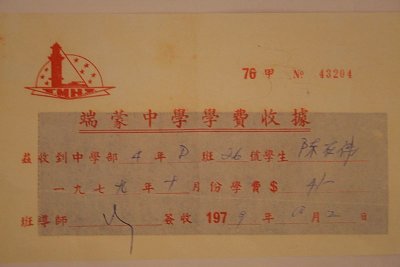 MH
76 甲 Nº 43204
端蒙中學學費收據
茲收到中學部 4 年 D 班 26 號學生 陳
一九七九年十月份學費$ 4/-
班導師 簽收 1979 年 10 月 2 日